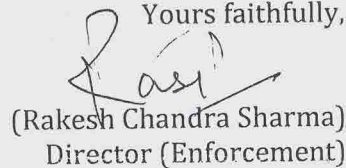 Yours faithfully,
(Rakesh Chandra Sharma)
Director (Enforcement)